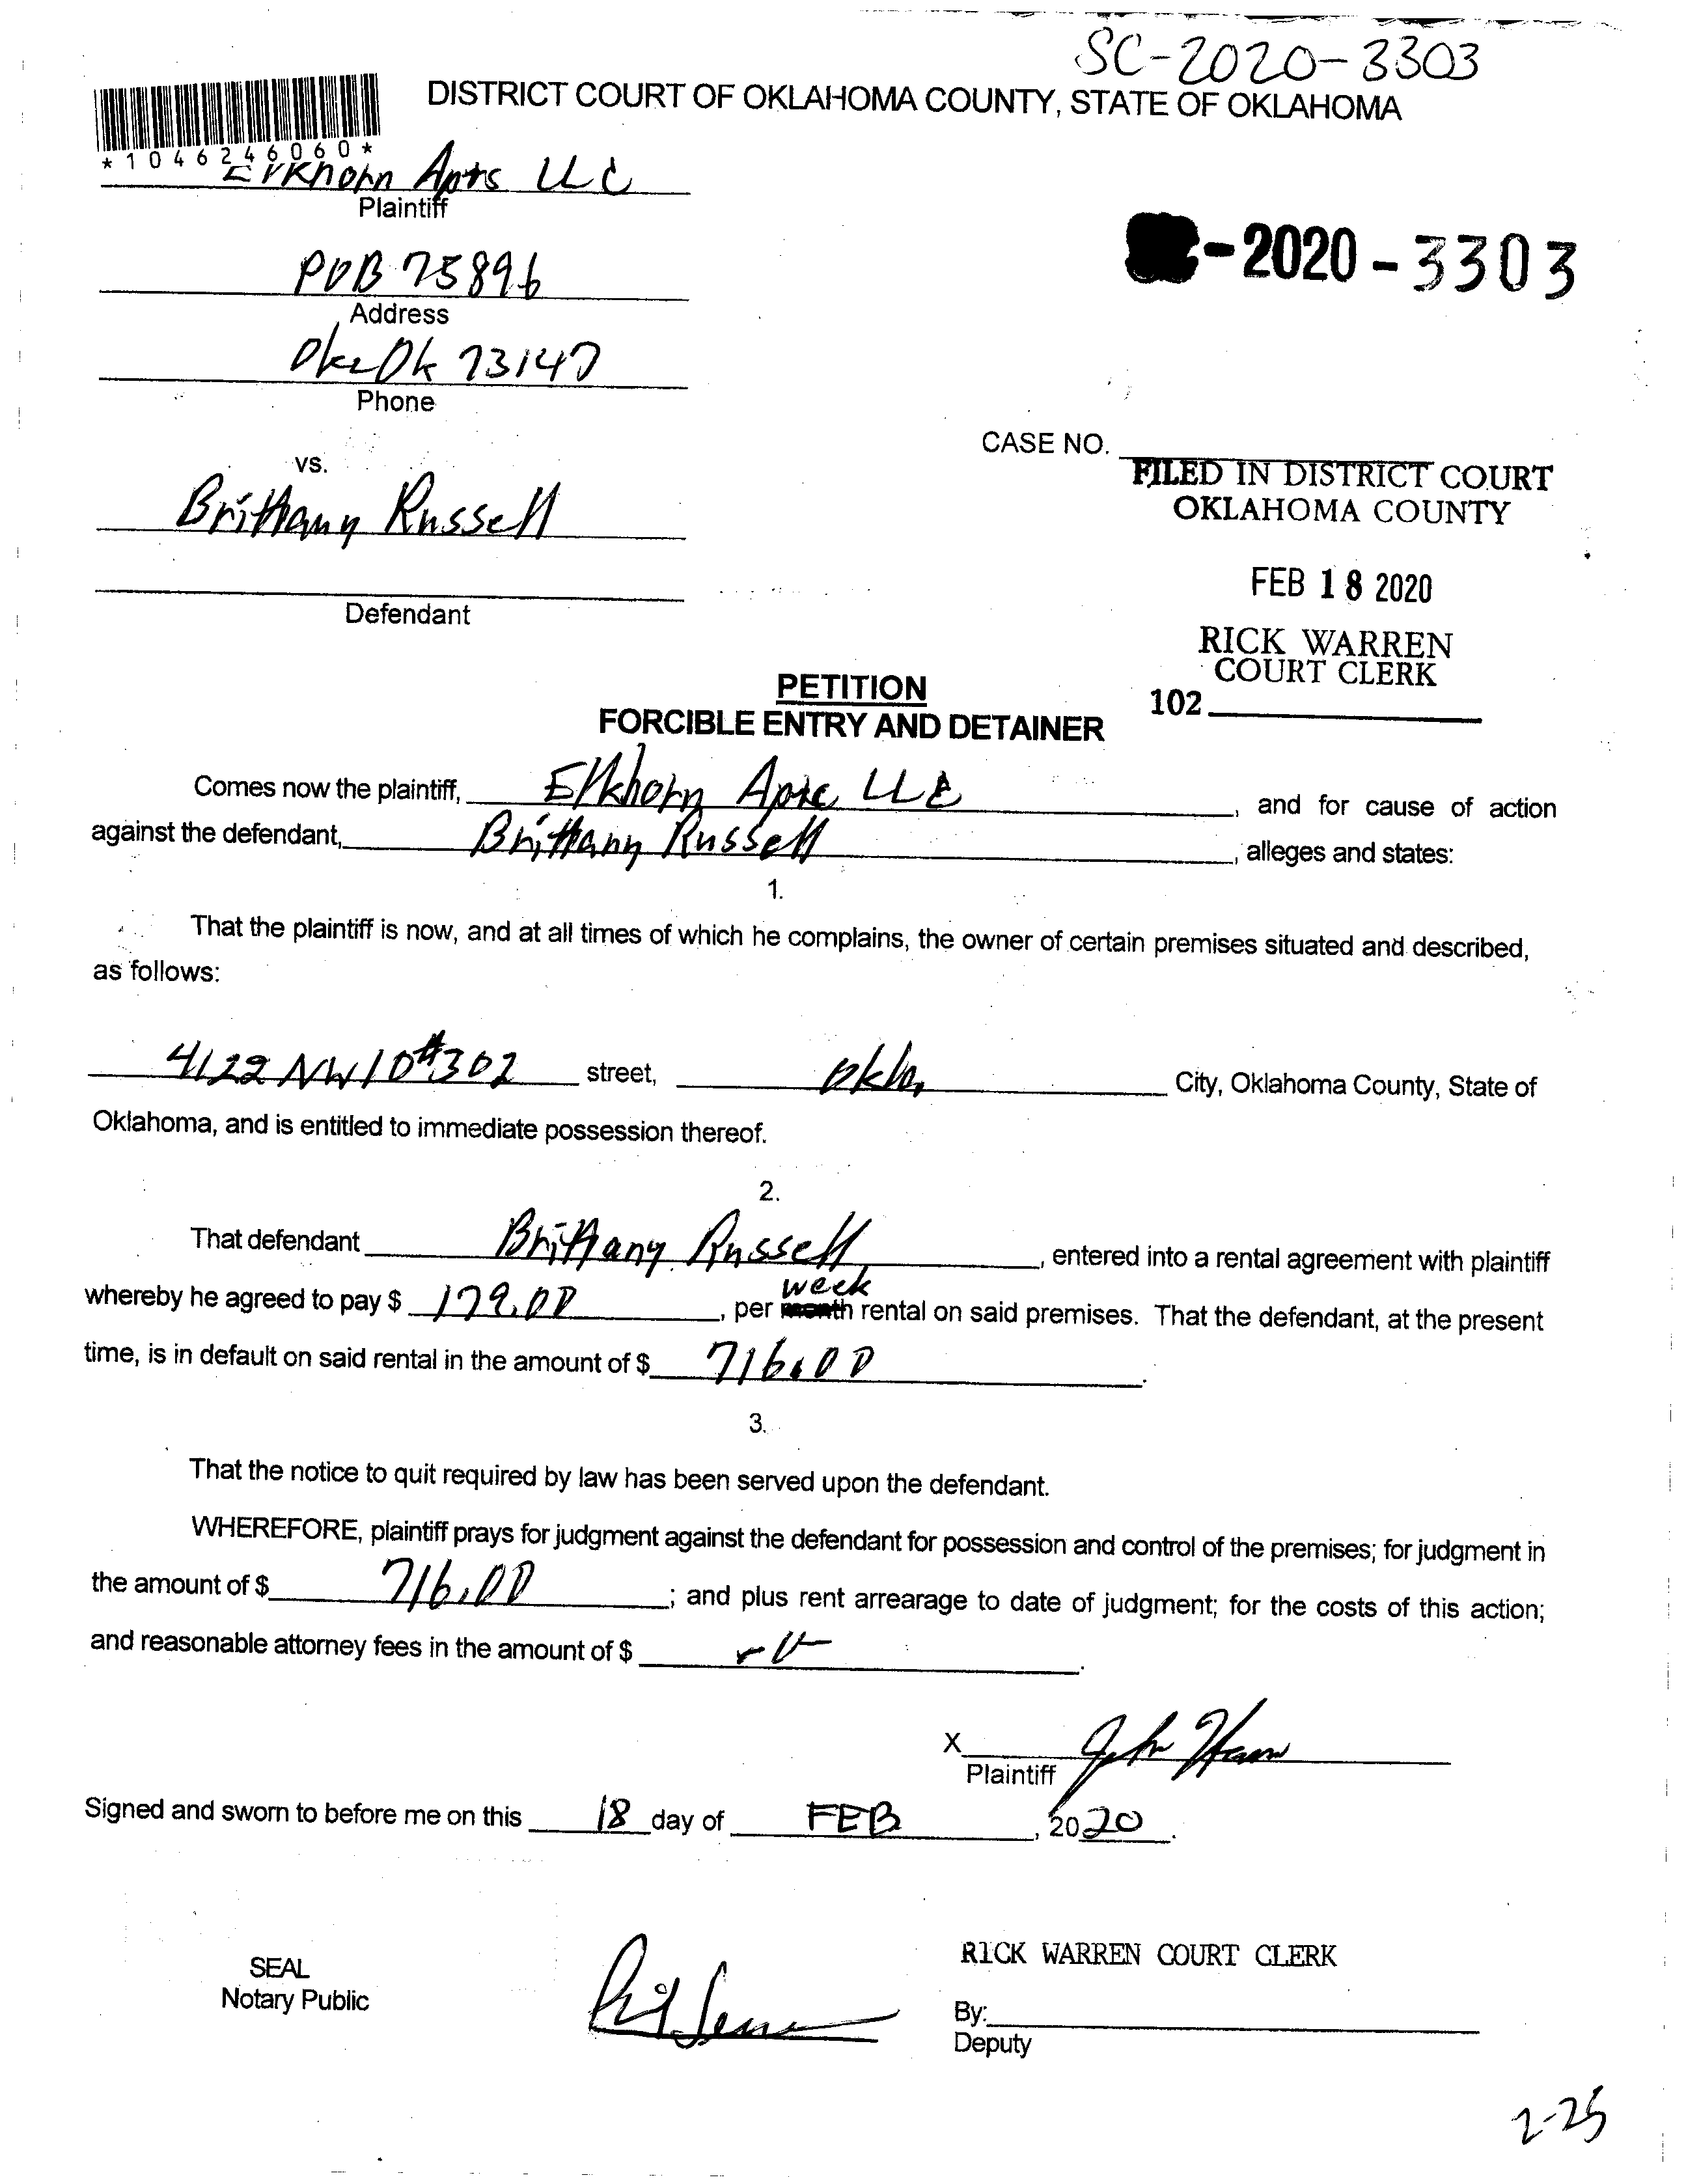 SC-2020-3303
DISTRICT COURT OF OKLAHOMA COUNTY, STATE OF OKLAHOMA
*1046246060*
Elkhorn Apts LLC
Plaintiff
-2020-3303
POB 75896
Address
Okc Ok 73147
Phone
CASE NO.
vs.
FILED IN DISTRICT COURT
OKLAHOMA COUNTY
Brittany Russell
FEB 18 2020
Defendant
RICK WARREN
COURT CLERK
102
PETITION
FORCIBLE ENTRY AND DETAINER
Comes now the plaintiff, Elkhorn Apts LLC, and for cause of action
against the defendant, Brittany Russell, alleges and states:
1.
That the plaintiff is now, and at all times of which he complains, the owner of certain premises situated and described,
as follows:
4122 NW 10 #302 street, Okla City, Oklahoma County, State of
Oklahoma, and is entitled to immediate possession thereof.
2.
That defendant Brittany Russell, entered into a rental agreement with plaintiff
week
whereby he agreed to pay $ 179.00, per month rental on said premises. That the defendant, at the present
time, is in default on said rental in the amount of $ 716.00.
3.
That the notice to quit required by law has been served upon the defendant.
WHEREFORE, plaintiff prays for judgment against the defendant for possession and control of the premises; for judgment in
the amount of $ 716.00; and plus rent arrearage to date of judgment; for the costs of this action;
and reasonable attorney fees in the amount of $
X
Plaintiff
Signed and sworn to before me on this 18 day of FEB, 2020.
RICK WARREN COURT CLERK
SEAL
Notary Public
By:
Deputy
2-25